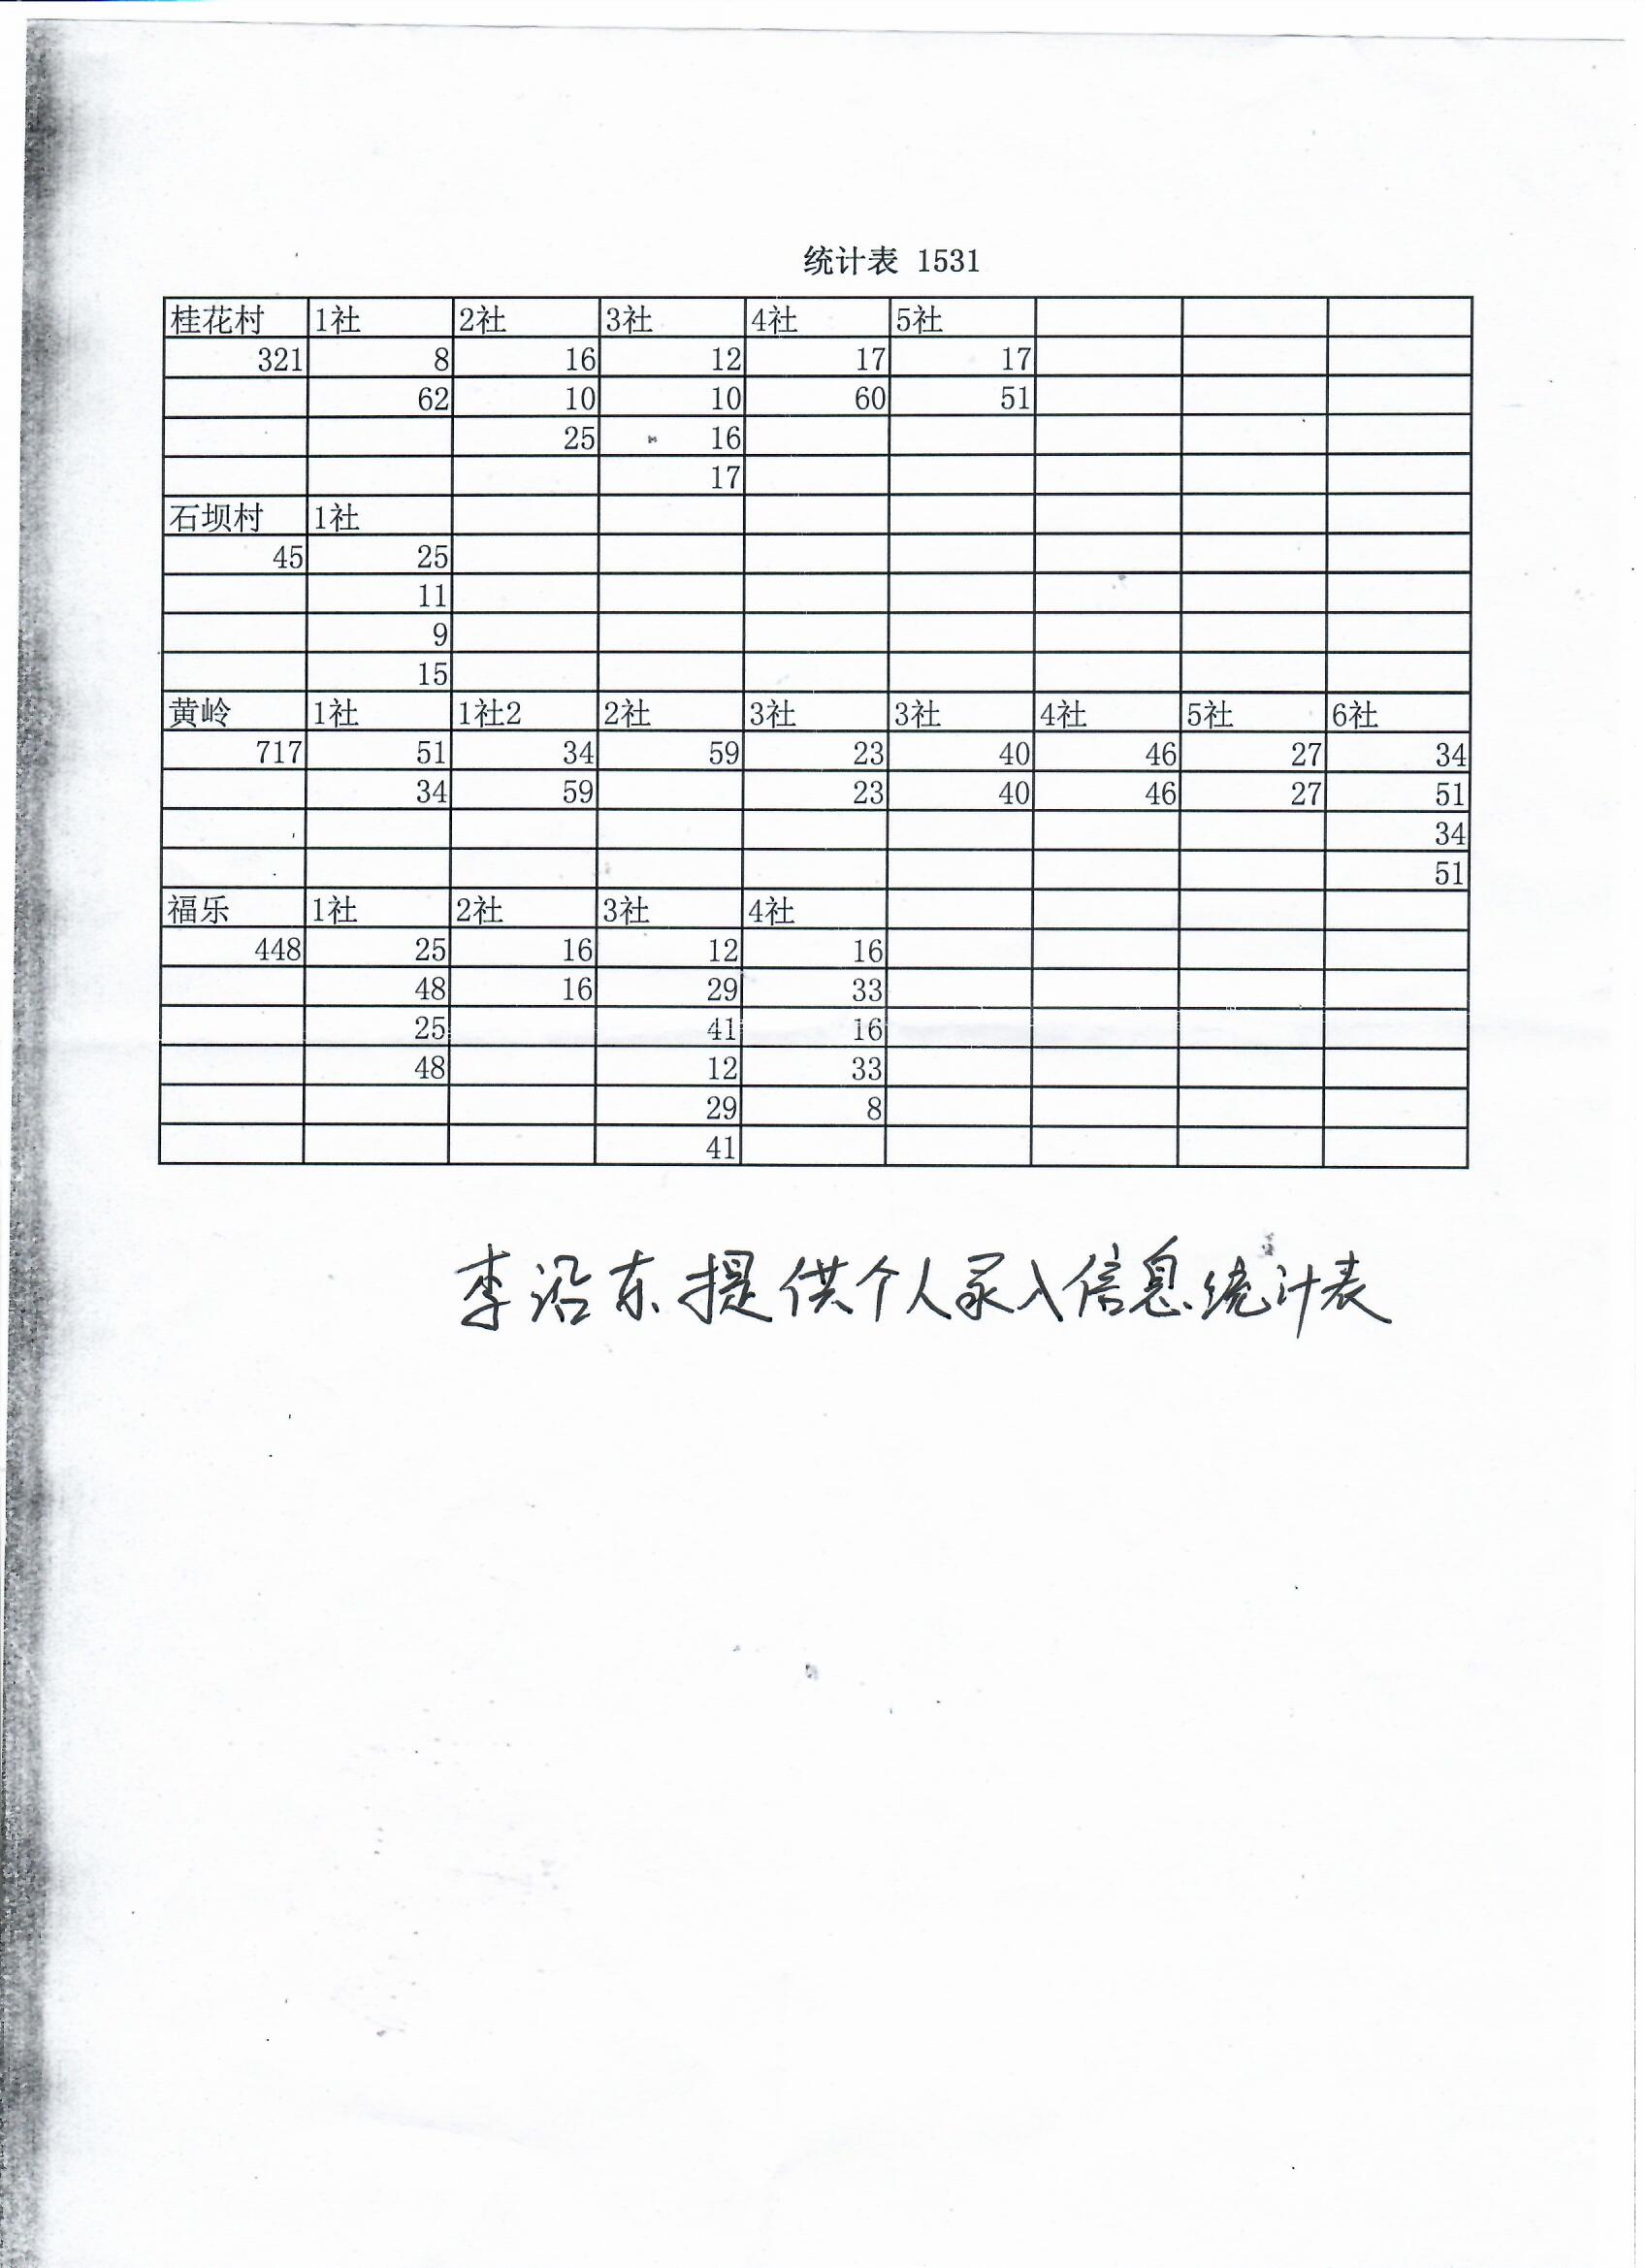 统计表 1531
桂花村 1社 2社 3社 4社 5社
321 8 16 12 17 17
62 10 10 60 51
25 16
17
石坝村 1社
45 25
11
9
15
黄岭 1社 1社2 2社 3社 3社 4社 5社 6社
717 51 34 59 23 40 46 27 34
34 59 23 40 46 27 51
34
51
福乐 1社 2社 3社 4社
448 25 16 12 16
48 16 29 33
25 41 16
48 12 33
29 8
41
李沿东提供个人录入信息统计表